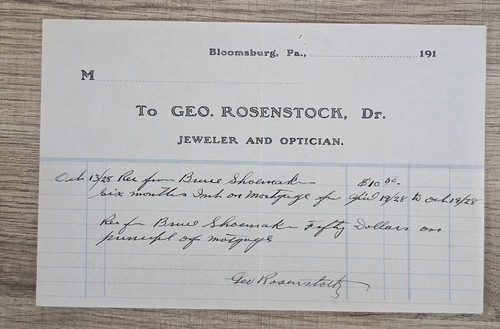 Bloomsburg, Pa., 191
M
To GEO. ROSENSTOCK, Dr.
JEWELER AND OPTICIAN.
Oct 13/28 Rec from Bruce Shoemaker $10.00
Six months Int on Mortgage fr 19/28 to Oct 19/28
Rec fr Bruce Shoemaker Fifty Dollars on
principl of motgage
Geo Rosenstock